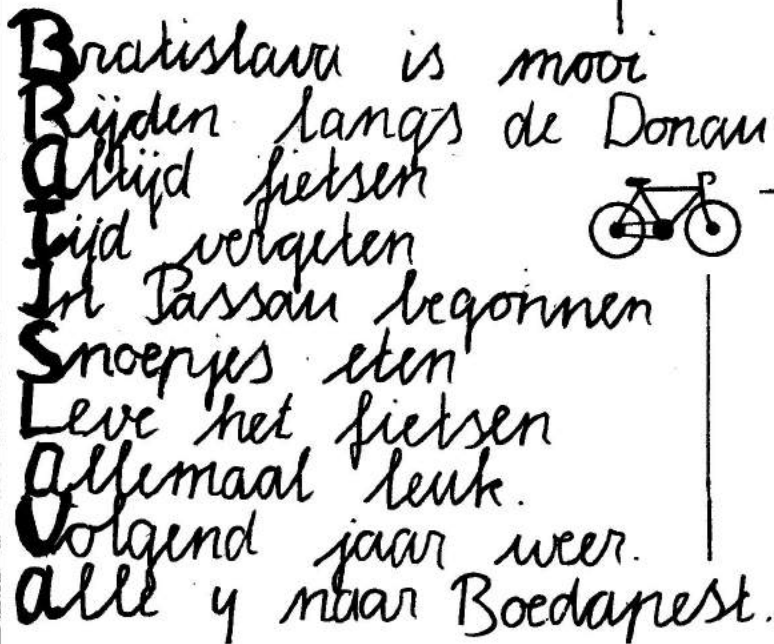 Bratislava is mooi
Rijden langs de Donau
Altijd fietsen
Tijd vergeten
In Passau begonnen
Snoepjes eten
Leve het fietsen
allemaal leuk.
Volgend jaar weer.
alle 4 naar Boedapest.